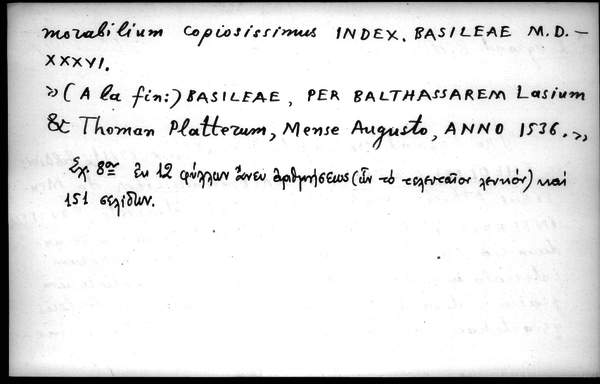 morabilium copiosissimus INDEX. BASILEAE M.D.–
XXXVI.
»(A la fin:) BASILEAE, PER BALTHASSAREM Lasium
& Thoman Platterum, Mense Augusto, ANNO 1536.»
Σχ. 8ον ἐκ 12 φύλλων ἄνευ ἀριθμήσεως (ὧν τὸ τελευταῖον λευκόν) καὶ
151 σελίδων.